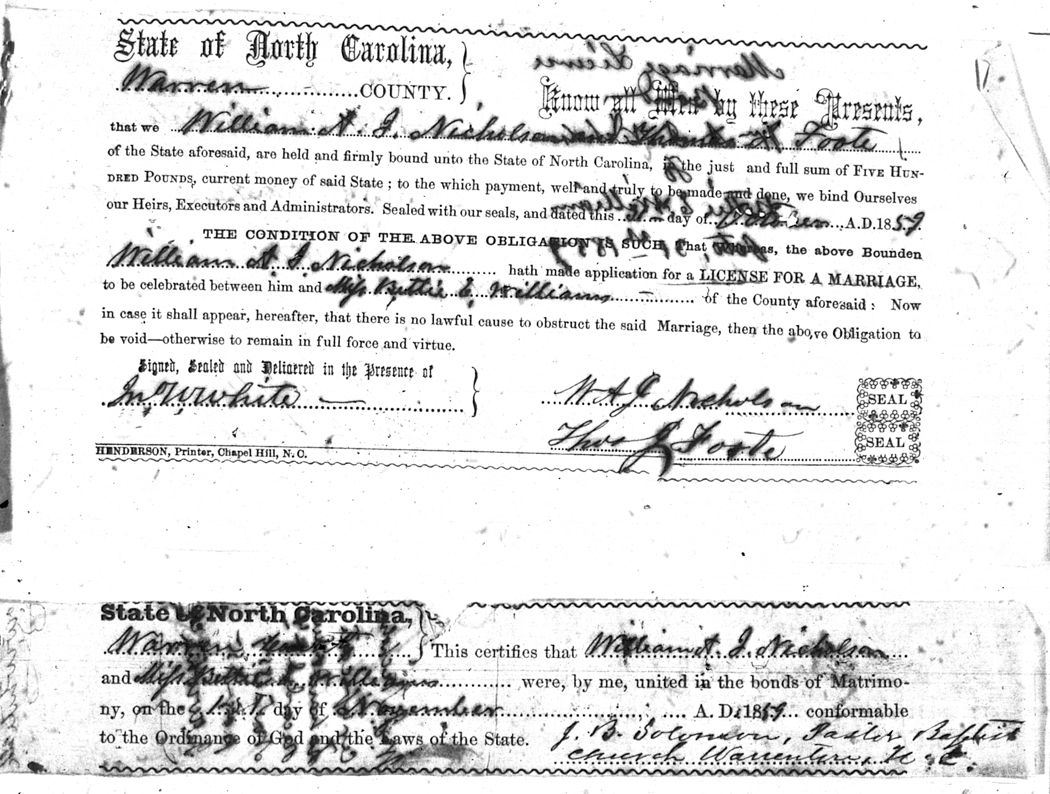 State of North Carolina,
Warren COUNTY.
Marriage License
Know all Men by these Presents,
that we William A. J. Nicholson and Thomas J. Foote
of the State aforesaid, are held and firmly bound unto the State of North Carolina, in the just and full sum of FIVE HUN-
DRED POUNDS, current money of said State; to the which payment, well and truly to be made and done, we bind Ourselves
our Heirs, Executors and Administrators. Sealed with our seals, and dated this day of A.D. 1859.
THE CONDITION OF THE ABOVE OBLIGATION IS SUCH, That Whereas, the above Bounden
William A. J. Nicholson hath made application for a LICENSE FOR A MARRIAGE,
to be celebrated between him and Miss Bettie E. Williams of the County aforesaid: Now
in case it shall appear, hereafter, that there is no lawful cause to obstruct the said Marriage, then the above Obligation to
be void—otherwise to remain in full force and virtue.
Signed, Sealed and Delivered in the Presence of
Jno. W. White
W A J Nicholson SEAL
Thos J Foote SEAL
HENDERSON, Printer, Chapel Hill, N. C.
State of North Carolina,
Warren This certifies that William A. J. Nicholson
and Miss Bettie E. Williams were, by me, united in the bonds of Matrimo-
ny, on the day of November A. D. 1859 conformable
to the Ordinance of God and the Laws of the State. J. B. Solomon, Pastor Baptist
Church Warrenton, N. C.